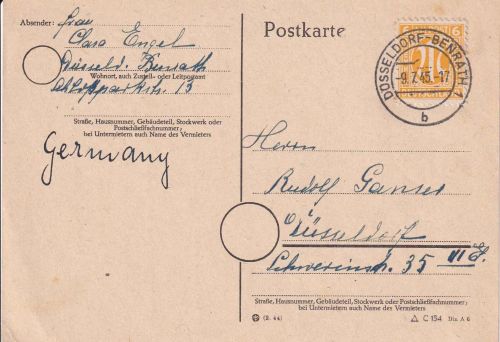 Absender: Frau
Clara Engel
Düsseld. Benrath
Wohnort, auch Zustell- oder Leitpostamt
Schloßparkstr. 13
Straße, Hausnummer, Gebäudeteil, Stockwerk oder
Postschließfachnummer;
bei Untermietern auch Name des Vermieters
Germany
Postkarte
6
DÜSSELDORF-BENRATH 1
-9.7.45.-17
b
Herrn
Rudolf Ganser
Düsseldorf
Schwerinstr. 35 VI
Straße, Hausnummer, Gebäudeteil, Stockwerk oder Postschließfachnummer;
bei Untermietern auch Name des Vermieters
(B. 44)
C 154 Din A 6